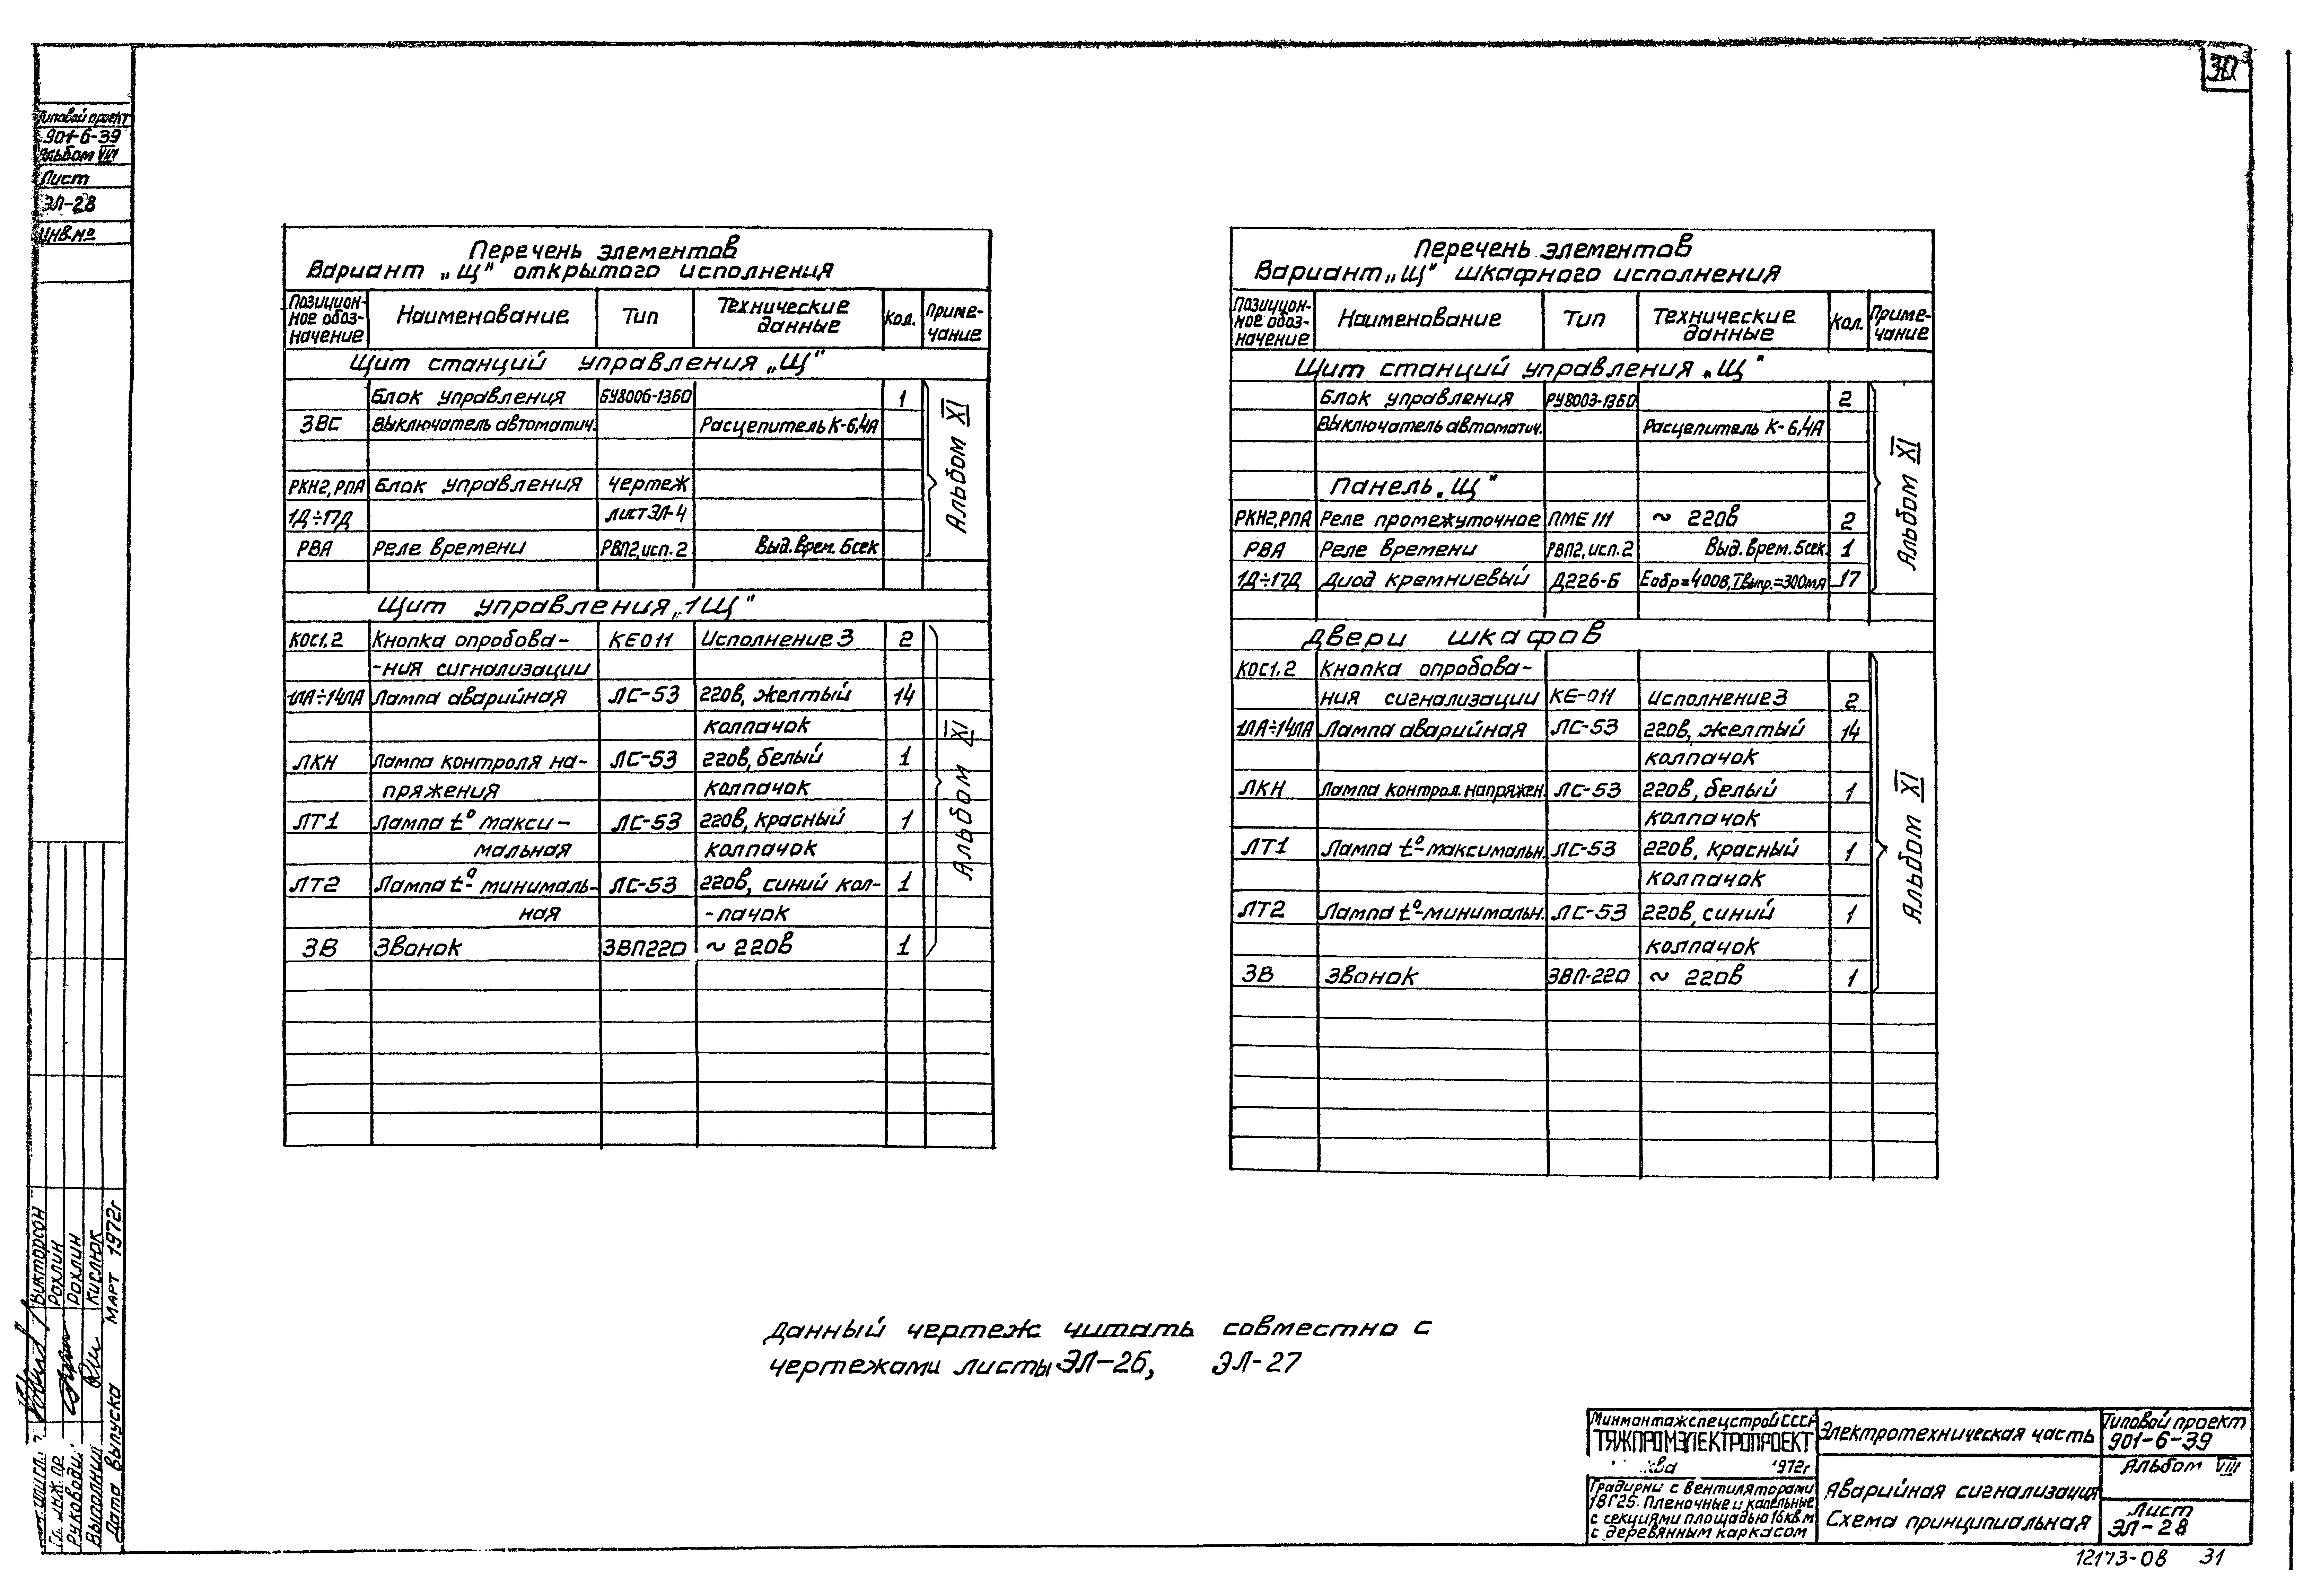 30
Типовой проект
901-6-39
Альбом VIII
Лист
ЭЛ-28
Инв.№
Перечень элементов
Вариант „Щ" открытого исполнения
Позицион-
ное обоз-
начение
Наименование
Тип
Технические
данные
Кол.
Приме-
чание
Щит станций управления „Щ"
Блок управления БУ8006-13Б0 1
3ВС Выключатель автоматич. Расцепитель К-6,4А
РКН2, РПА Блок управления чертеж
1Д÷17Д лист ЭЛ-4
РВА Реле времени РВП2, исп. 2 Выд. врем. 5сек
Альбом XI
Щит управления „1Щ"
КОС1,2 Кнопка опробова- КЕ011 Исполнение 3 2
-ния сигнализации
1ЛА÷14ЛА Лампа аварийная ЛС-53 220в, желтый 14
колпачок
ЛКН Лампа контроля на- ЛС-53 220в, белый 1
пряжения колпачок
ЛТ1 Лампа t° макси- ЛС-53 220в, красный 1
мальная колпачок
ЛТ2 Лампа t° минималь- ЛС-53 220в, синий кол- 1
ная -пачок
ЗВ Звонок ЗВП220 ~ 220в 1
Альбом XI
Перечень элементов
Вариант „Щ" шкафного исполнения
Позицион-
ное обоз-
начение
Наименование
Тип
Технические
данные
Кол.
Приме-
чание
Щит станций управления „Щ"
Блок управления РУ8003-13Б0 2
Выключатель автоматич. Расцепитель К-6,4А
Панель „Щ"
РКН2, РПА Реле промежуточное ПМЕ 111 ~ 220в 2
РВА Реле времени РВП2, исп. 2 Выд. врем. 5сек. 1
1Д÷17Д Диод кремниевый Д226-Б Еобр=400в, Iвыпр.=300мА 17
Альбом XI
Двери шкафов
КОС1,2 Кнопка опробова-
ния сигнализации КЕ-011 Исполнение 3 2
1ЛА÷14ЛА Лампа аварийная ЛС-53 220в, желтый 14
колпачок
ЛКН Лампа контрол. напряжен. ЛС-53 220в, белый 1
колпачок
ЛТ1 Лампа t°-максимальн. ЛС-53 220в, красный 1
колпачок
ЛТ2 Лампа t°-минимальн. ЛС-53 220в, синий 1
колпачок
ЗВ Звонок ЗВП-220 ~ 220в 1
Альбом XI
Данный чертеж читать совместно с
чертежами листы ЭЛ-26, ЭЛ-27
Викторсон
Гл. инж. пр Рохлин
Руководи. Рохлин
Выполнил Кислюк
Дата выпуска март 1972г
Минмонтажспецстрой СССР
ТЯЖПРОМЭЛЕКТРОПРОЕКТ
1972г
Градирни с вентиляторами
1ВГ25. Пленочные и капельные
с секциями площадью 16 кв.м
с деревянным каркасом
Электротехническая часть
Аварийная сигнализация
Схема принципиальная
Типовой проект
901-6-39
Альбом VIII
Лист
ЭЛ-28
12173-08 31